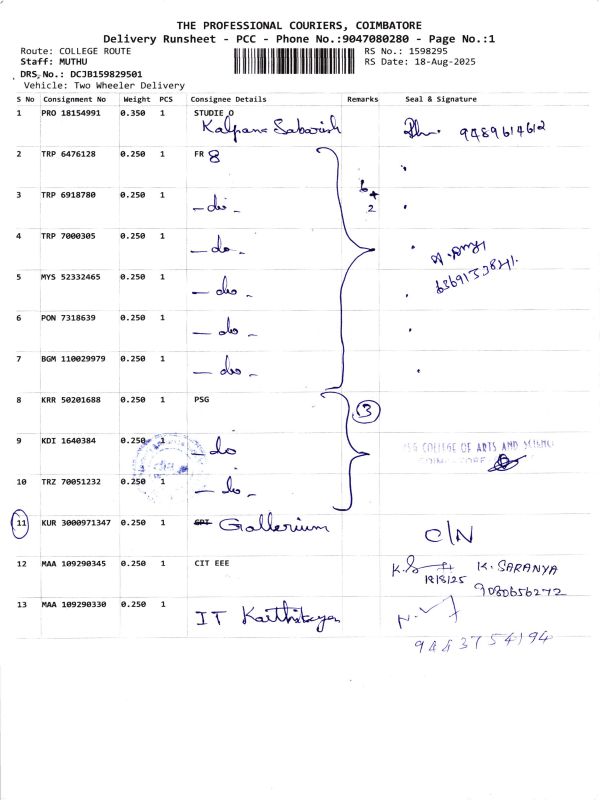 THE PROFESSIONAL COURIERS, COIMBATORE
Delivery Runsheet - PCC - Phone No.:9047080280 - Page No.:1
Route: COLLEGE ROUTE RS No.: 1598295
Staff: MUTHU RS Date: 18-Aug-2025
DRS, No.: DCJB159829501
Vehicle: Two Wheeler Delivery
S No Consignment No Weight PCS Consignee Details Remarks Seal & Signature
1 PRO 18154991 0.350 1 STUDIE O
Kalpana Sabarish 9489614612
2 TRP 6476128 0.250 1 FR 8
3 TRP 6918780 0.250 1 - do - 6+2
4 TRP 7000305 0.250 1 - do -
5 MYS 52332465 0.250 1 - do -
6 PON 7318639 0.250 1 - do -
7 BGM 110029979 0.250 1 - do -
8 KRR 50201688 0.250 1 PSG 3
9 KDI 1640384 0.250 1 - do COLLEGE OF ARTS AND SCIENCE
10 TRZ 70051232 0.250 1 - do -
11 KUR 3000971347 0.250 1 GPT Gallerium C/N
12 MAA 109290345 0.250 1 CIT EEE K. SARANYA
18/8/25 9080656272
13 MAA 109290330 0.250 1 IT
9443754194